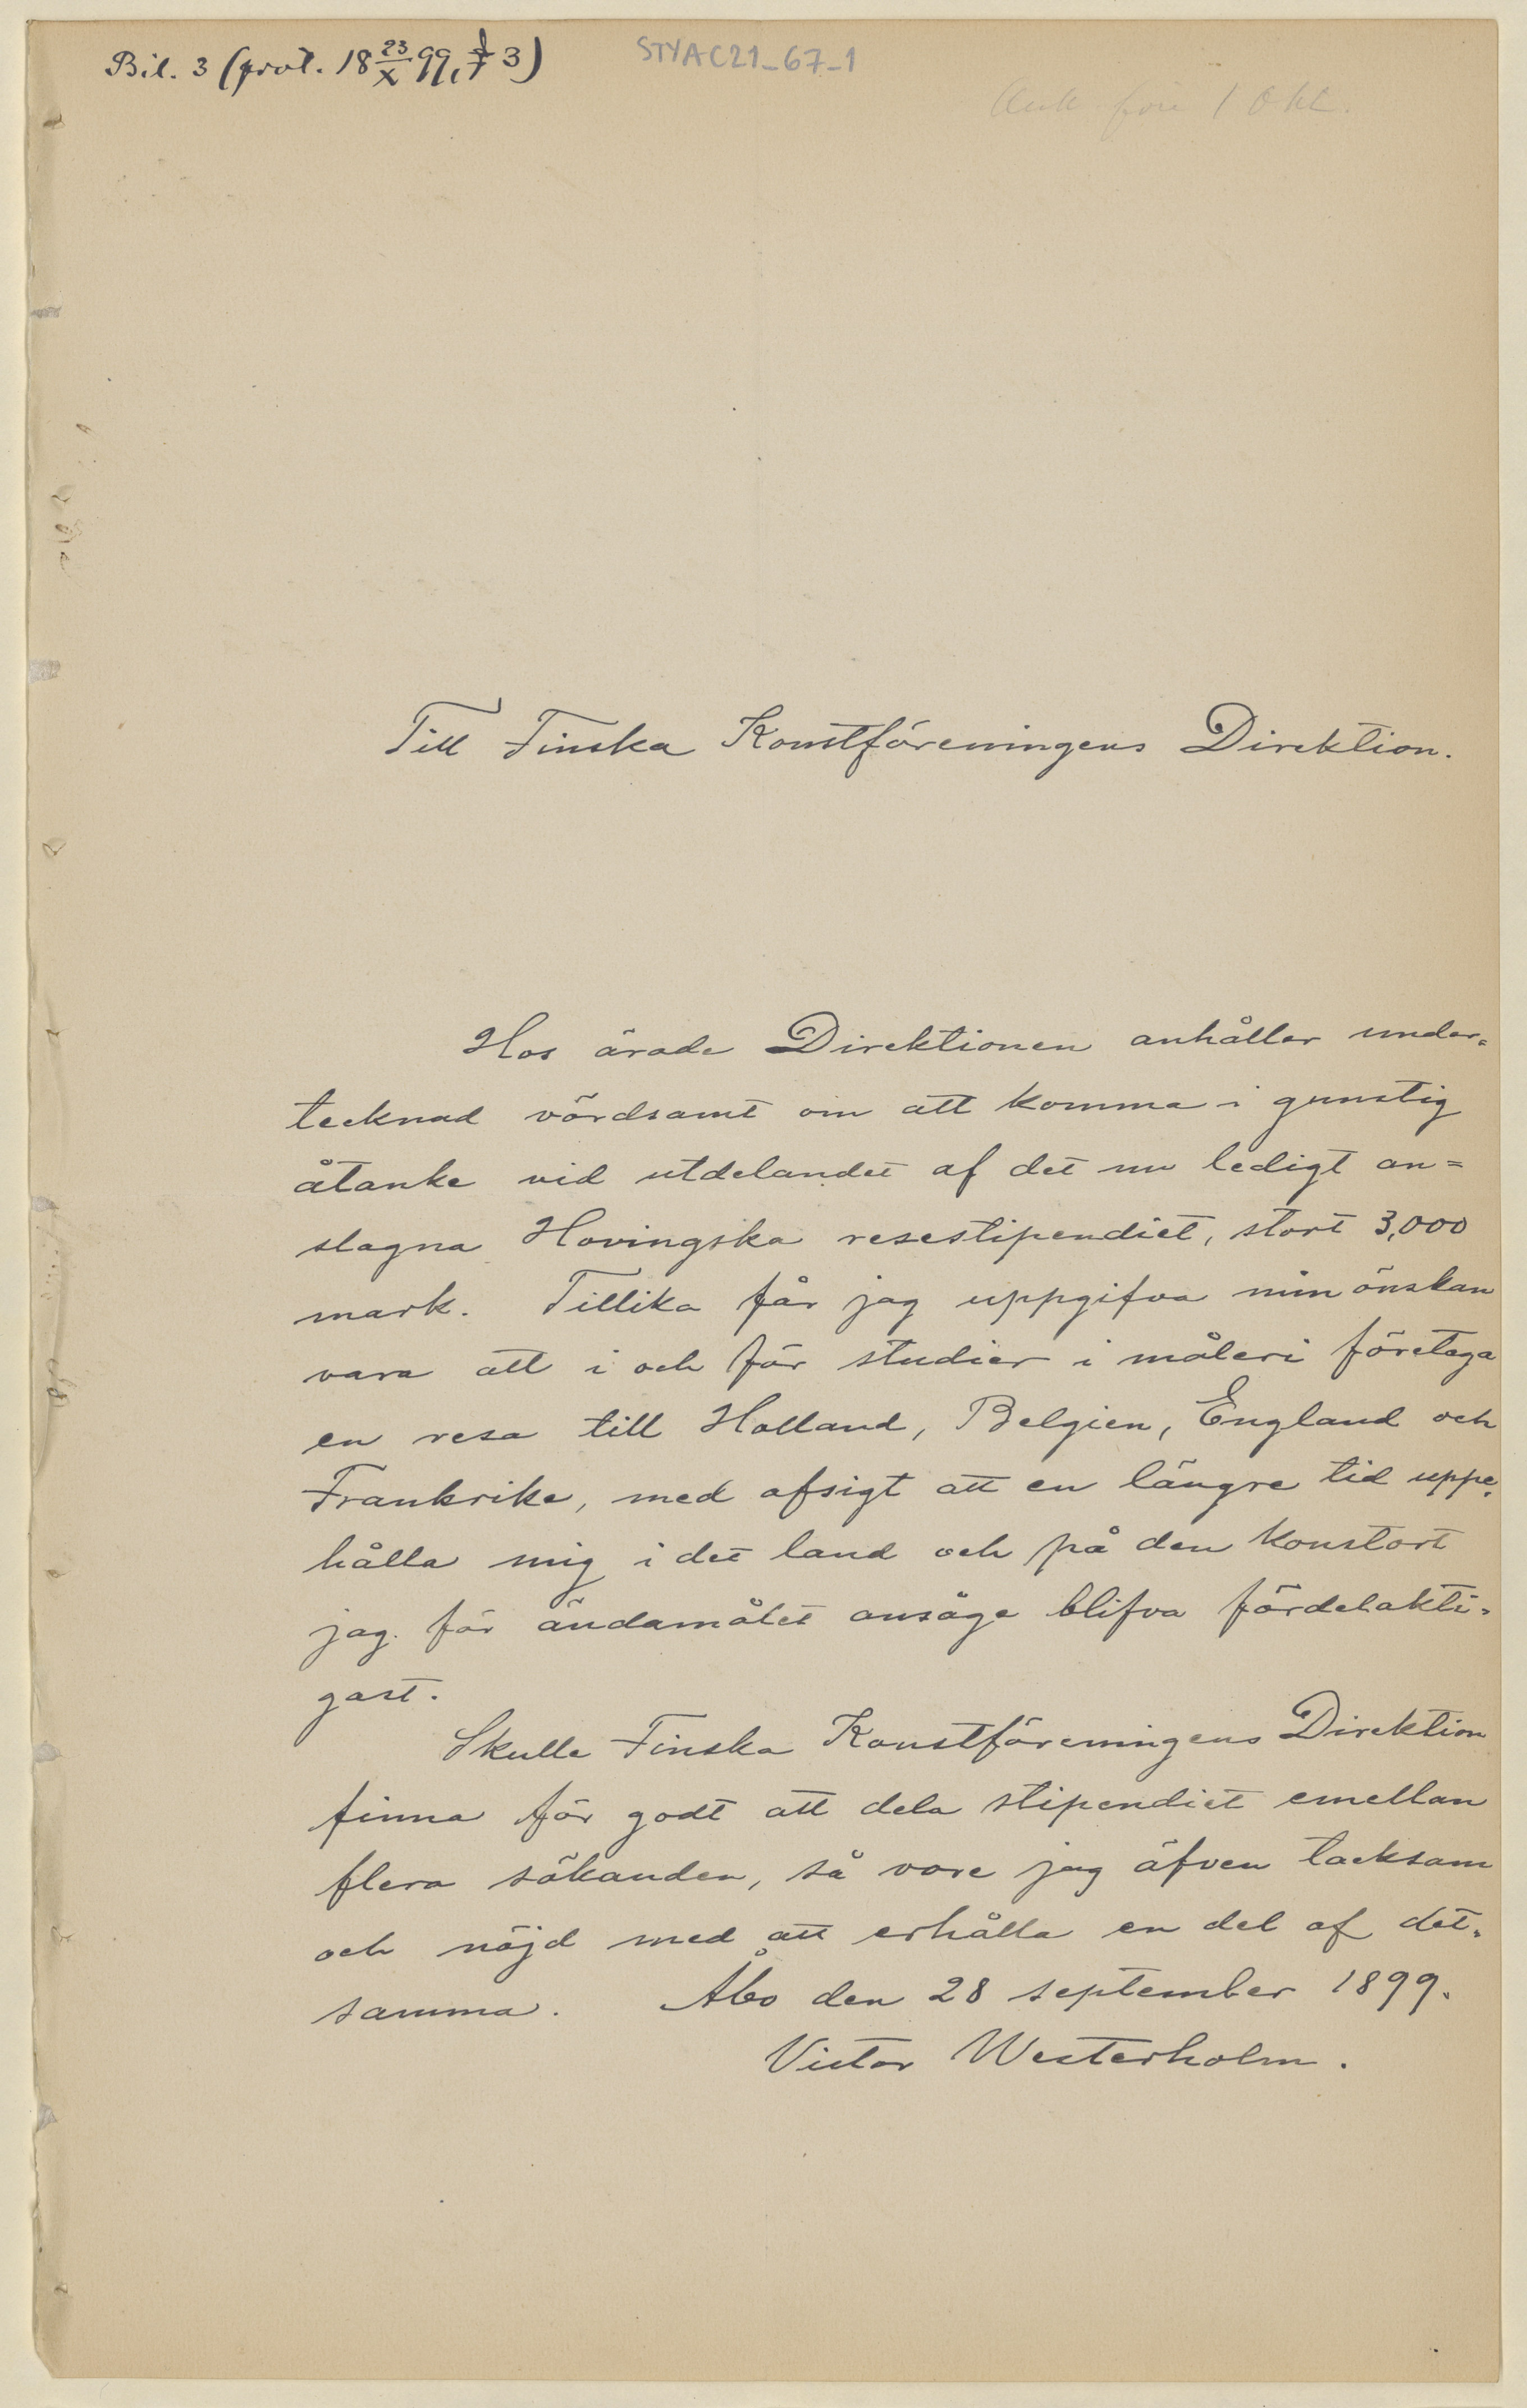 Bil. 3 (prot. 18 23/X 99, § 3)
STYAC21_67_1
Ank. före 1 Okt.
Till Finska Konstföreningens Direktion.
Hos ärade Direktionen anhåller under=
tecknad vördsamt om att komma i gunstig
åtanke vid utdelandet af det nu ledigt an=
slagna Hovingska resestipendiet, stort 3,000
mark. Tillika får jag uppgifva min önskan
vara att i och för studier i måleri företaga
en resa till Holland, Belgien, England och
Frankrike, med afsigt att en längre tid uppe=
hålla mig i det land och på den konstort
jag för ändamålet ansåge blifva fördelakti=
gast.
Skulle Finska Konstföreningens Direktion
finna för godt att dela stipendiet emellan
flera sökanden, så vore jag äfven tacksam
och nöjd med att erhålla en del af det=
samma. Åbo den 28 september 1899.
Victor Westerholm.